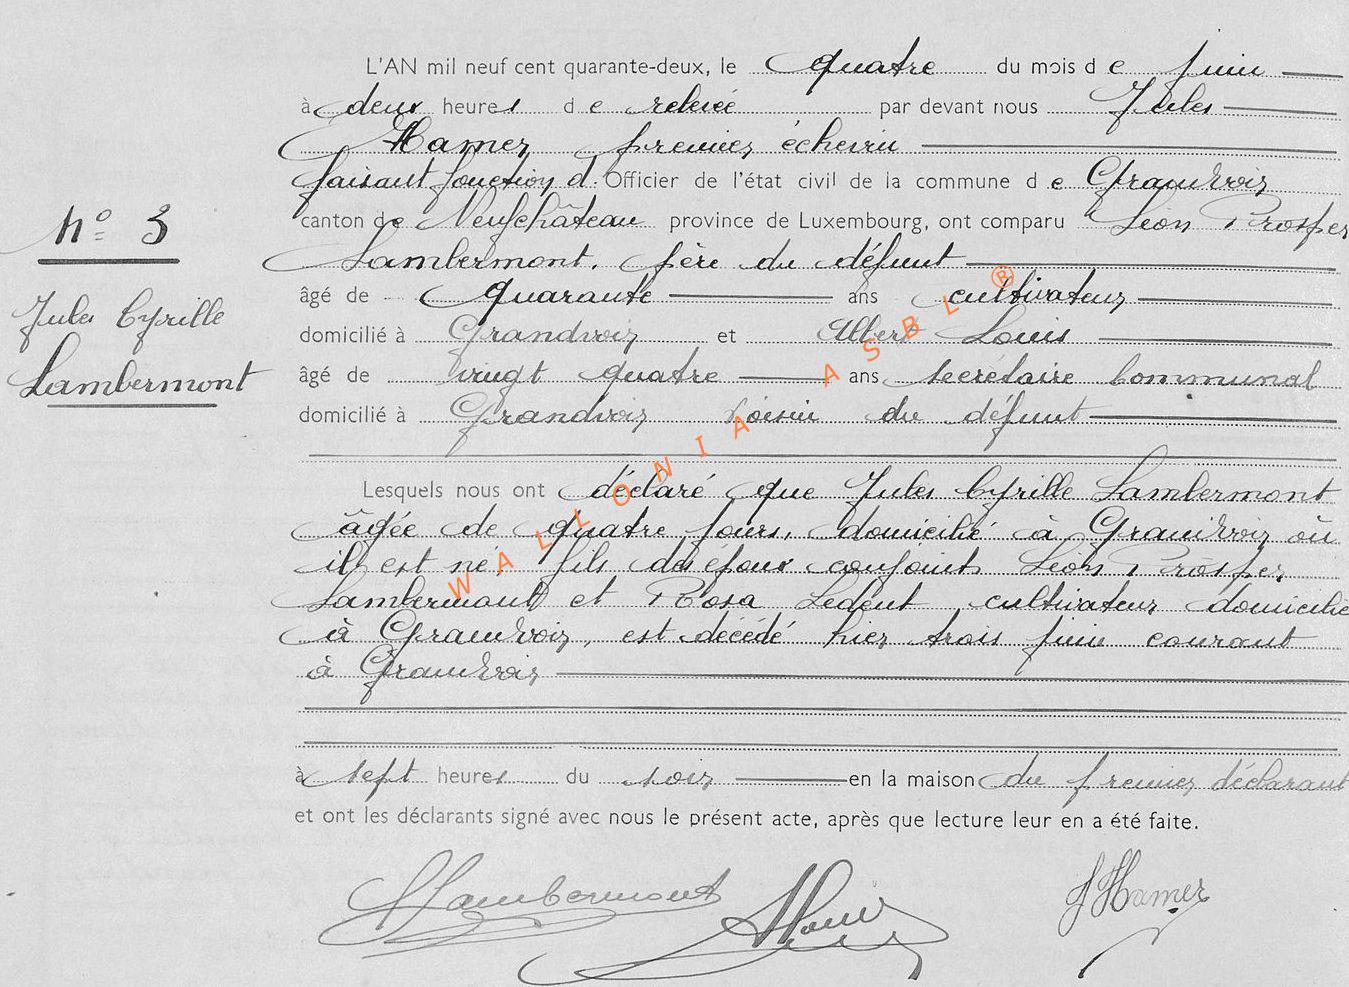 L'AN mil neuf cent quarante-deux, le quatre du mois de juin
à deux heures de relevée par devant nous Jules
Hamer premier échevin
faisant fonction d'Officier de l'état civil de la commune de Grandvoir
canton de Neufchâteau province de Luxembourg, ont comparu Léon Prosper
Lambermont, père du défunt
âgé de quarante ans cultivateur
domicilié à Grandvoir et Albert Louis
âgé de vingt quatre ans secrétaire communal
domicilié à Grandvoir voisin du défunt
N° 3
Jules Cyrille
Lambermont
Lesquels nous ont déclaré que Jules Cyrille Lambermont
âgée de quatre jours, domicilié à Grandvoir où
il est né, fils des époux conjoints Léon Prosper
Lambermont et Rosa Ledent, cultivateur domicilié
à Grandvoir, est décédé hier trois juin courant
à Grandvoir
à sept heures du soir en la maison du premier déclarant
et ont les déclarants signé avec nous le présent acte, après que lecture leur en a été faite.
Lambermont
ALouis
JHamer
WALLONIA ASBL ®